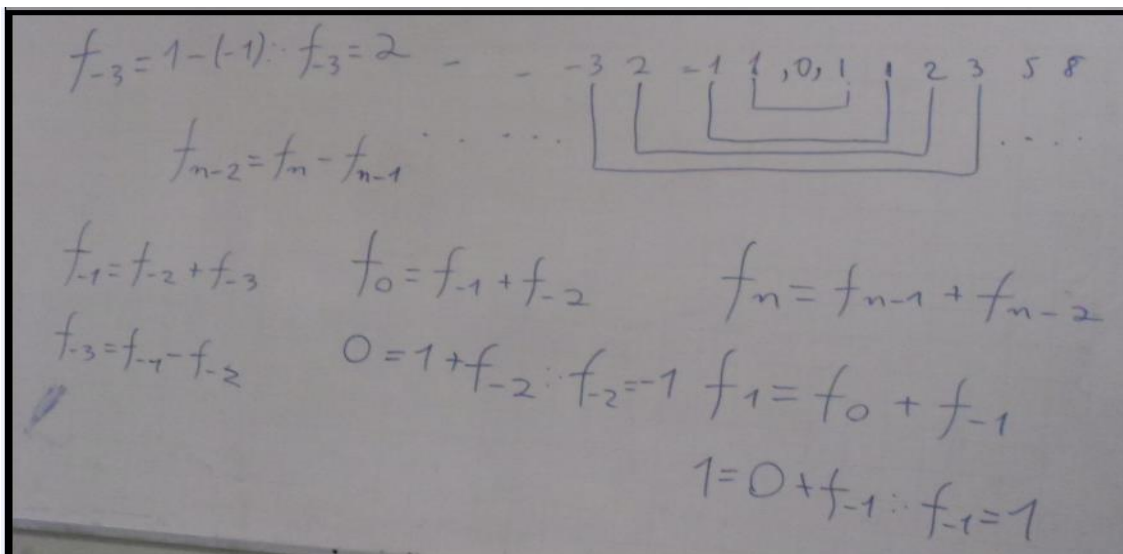 f₋₃ = 1 - (-1) ∴ f₋₃ = 2 - - -3 2 -1 1 , 0 , 1 1 2 3 5 8
fₙ₋₂ = fₙ - fₙ₋₁ . . . . . . . . . .
f₋₁ = f₋₂ + f₋₃
f₋₃ = f₋₁ - f₋₂
f₀ = f₋₁ + f₋₂
0 = 1 + f₋₂ ∴ f₋₂ = -1
fₙ = fₙ₋₁ + fₙ₋₂
f₁ = f₀ + f₋₁
1 = 0 + f₋₁ ∴ f₋₁ = 1